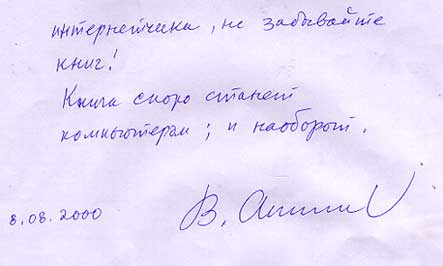 интернетчики, не забывайте
книг!
Книга скоро станет
компьютером; и наоборот.
8.08.2000
В.